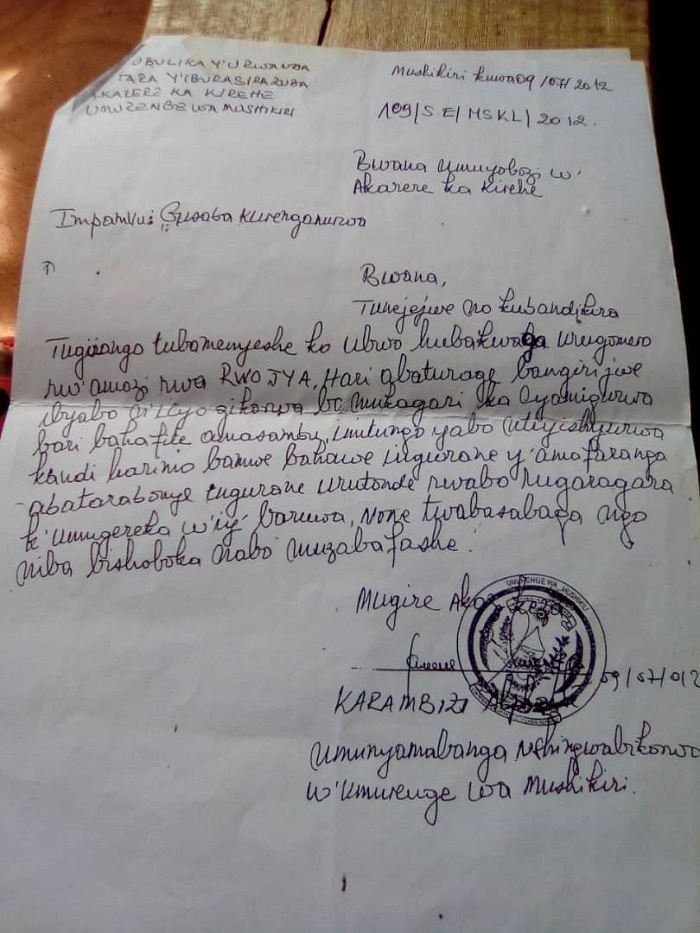 UBULIKA Y'URWANDA
TARA Y'IBURASIRAZUBA
AKARERE KA KIREHE
UMURENGE WA MUSHIKIRI
Mushikiri kuwa 09/07/2012
109/SE/MSKL/2012.
Bwana Umuyobozi w'
Akarere ka Kirehe
Impamvu: Gusaba kurenganurwa
Bwana,
Tunejejwe no kubandikira
Tugirango tubamenyeshe ko ubwo hubakwaga urugomero
rw'amazi rwa RWOJYA, Hari abaturage bangirijwe
ibyabo n'iyo gikorwa bo mu kagari ka Cyamigurwa
bari bahafite amasambu, imitungo yabo ntiyishyurwa
kandi harimo bamwe bahawe ingurane y'amafaranga
abatarabonye ingurane urutonde rwabo rugaragara
k'umugereka w'iyi baruwa, None twabasabaga ngo
niba bishoboka nabo muzabafashe.
Mugire Akazi keza
UMURENGE WA MUSHIKIRI
09/07/012
KARAMBIZI
Umunyamabanga Nshingwabikorwa
w'Umurenge wa Mushikiri.